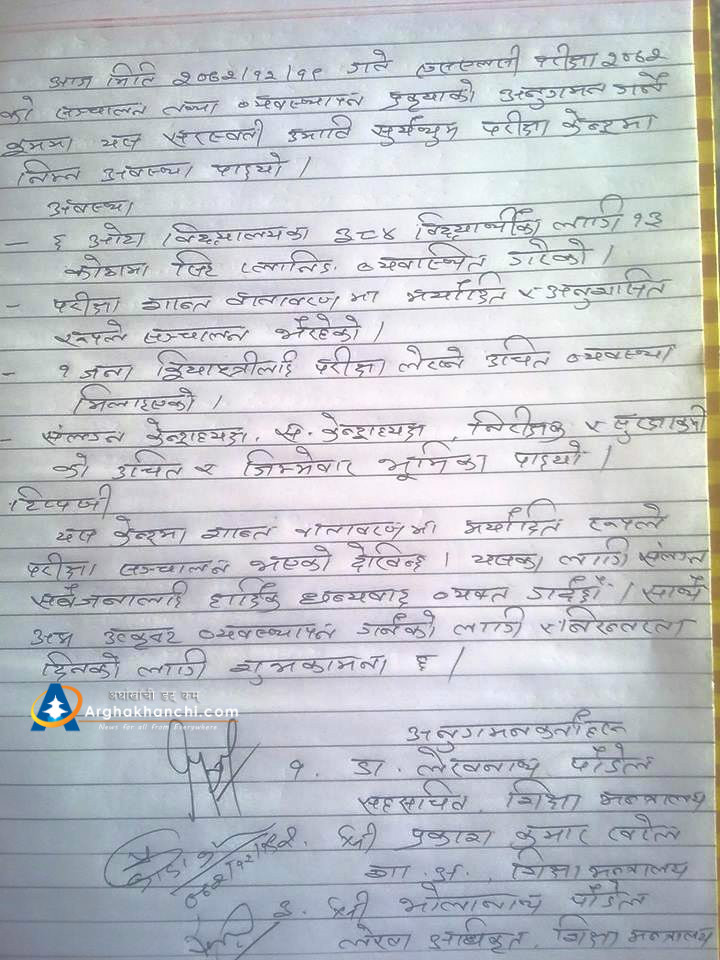 आज मिति २०७२/१२/१९ गते एसएलसी परीक्षा २०७२
को सञ्चालन तथा व्यवस्थापन प्रकृयाको अनुगमन गर्ने
क्रममा यस सरस्वती उमावि परीक्षा केन्द्रमा
निम्न अवस्था पाइयो ।
अवस्था
– ६ ओटा विद्यालयका ३८४ विद्यार्थीका लागि १३
कोठामा सिट प्लानिङ व्यवस्थित गरेको ।
– परीक्षा शान्त वातावरणमा मर्यादित र अनुशासित
रूपले सञ्चालन भैरहेको ।
– १ जना परीक्षा लेख्ने उचित व्यवस्था
मिलाइएको ।
– संलग्न केन्द्राध्यक्ष, स. केन्द्राध्यक्ष, निरीक्षक र सुरक्षाकर्मी
को उचित र जिम्मेवार भूमिका पाइयो ।
टिप्पणी
यस केन्द्रमा शान्त वातावरणमा मर्यादित रूपले
परीक्षा सञ्चालन भएको देखिन्छ । यसका लागि संलग्न
सबैजनालाई हार्दिक धन्यवाद व्यक्त गर्दछौं । साथै
अझ उत्कृष्ट व्यवस्थापन गर्नको लागि र निरन्तरता
दिनको लागि शुभकामना छ ।
अर्घाखाँची डट कम्
Arghakhanchi.com
News for all from Everywhere
अनुगमनकर्ताहरू
१. डा. लेखनाथ पौडेल
सहसचिव, शिक्षा मन्त्रालय
श्री प्रकाश कुमार खरेल
शा. अ., शिक्षा मन्त्रालय
३. श्री भोलानाथ पौडेल
लेखा अधिकृत, शिक्षा मन्त्रालय